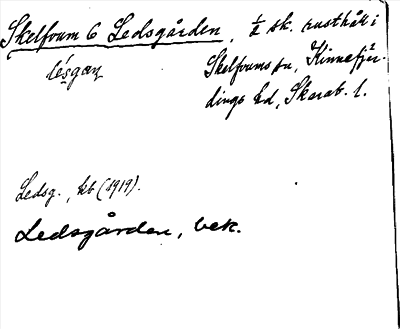 Skelfvum 6 Ledsgården, ½ sk. rusthåll i
lésgaɳ
Skelfvums sn, Kinnefjär-
dings hd, Skarab. l.
Ledsg., kb (1919).
Ledsgården, bek.